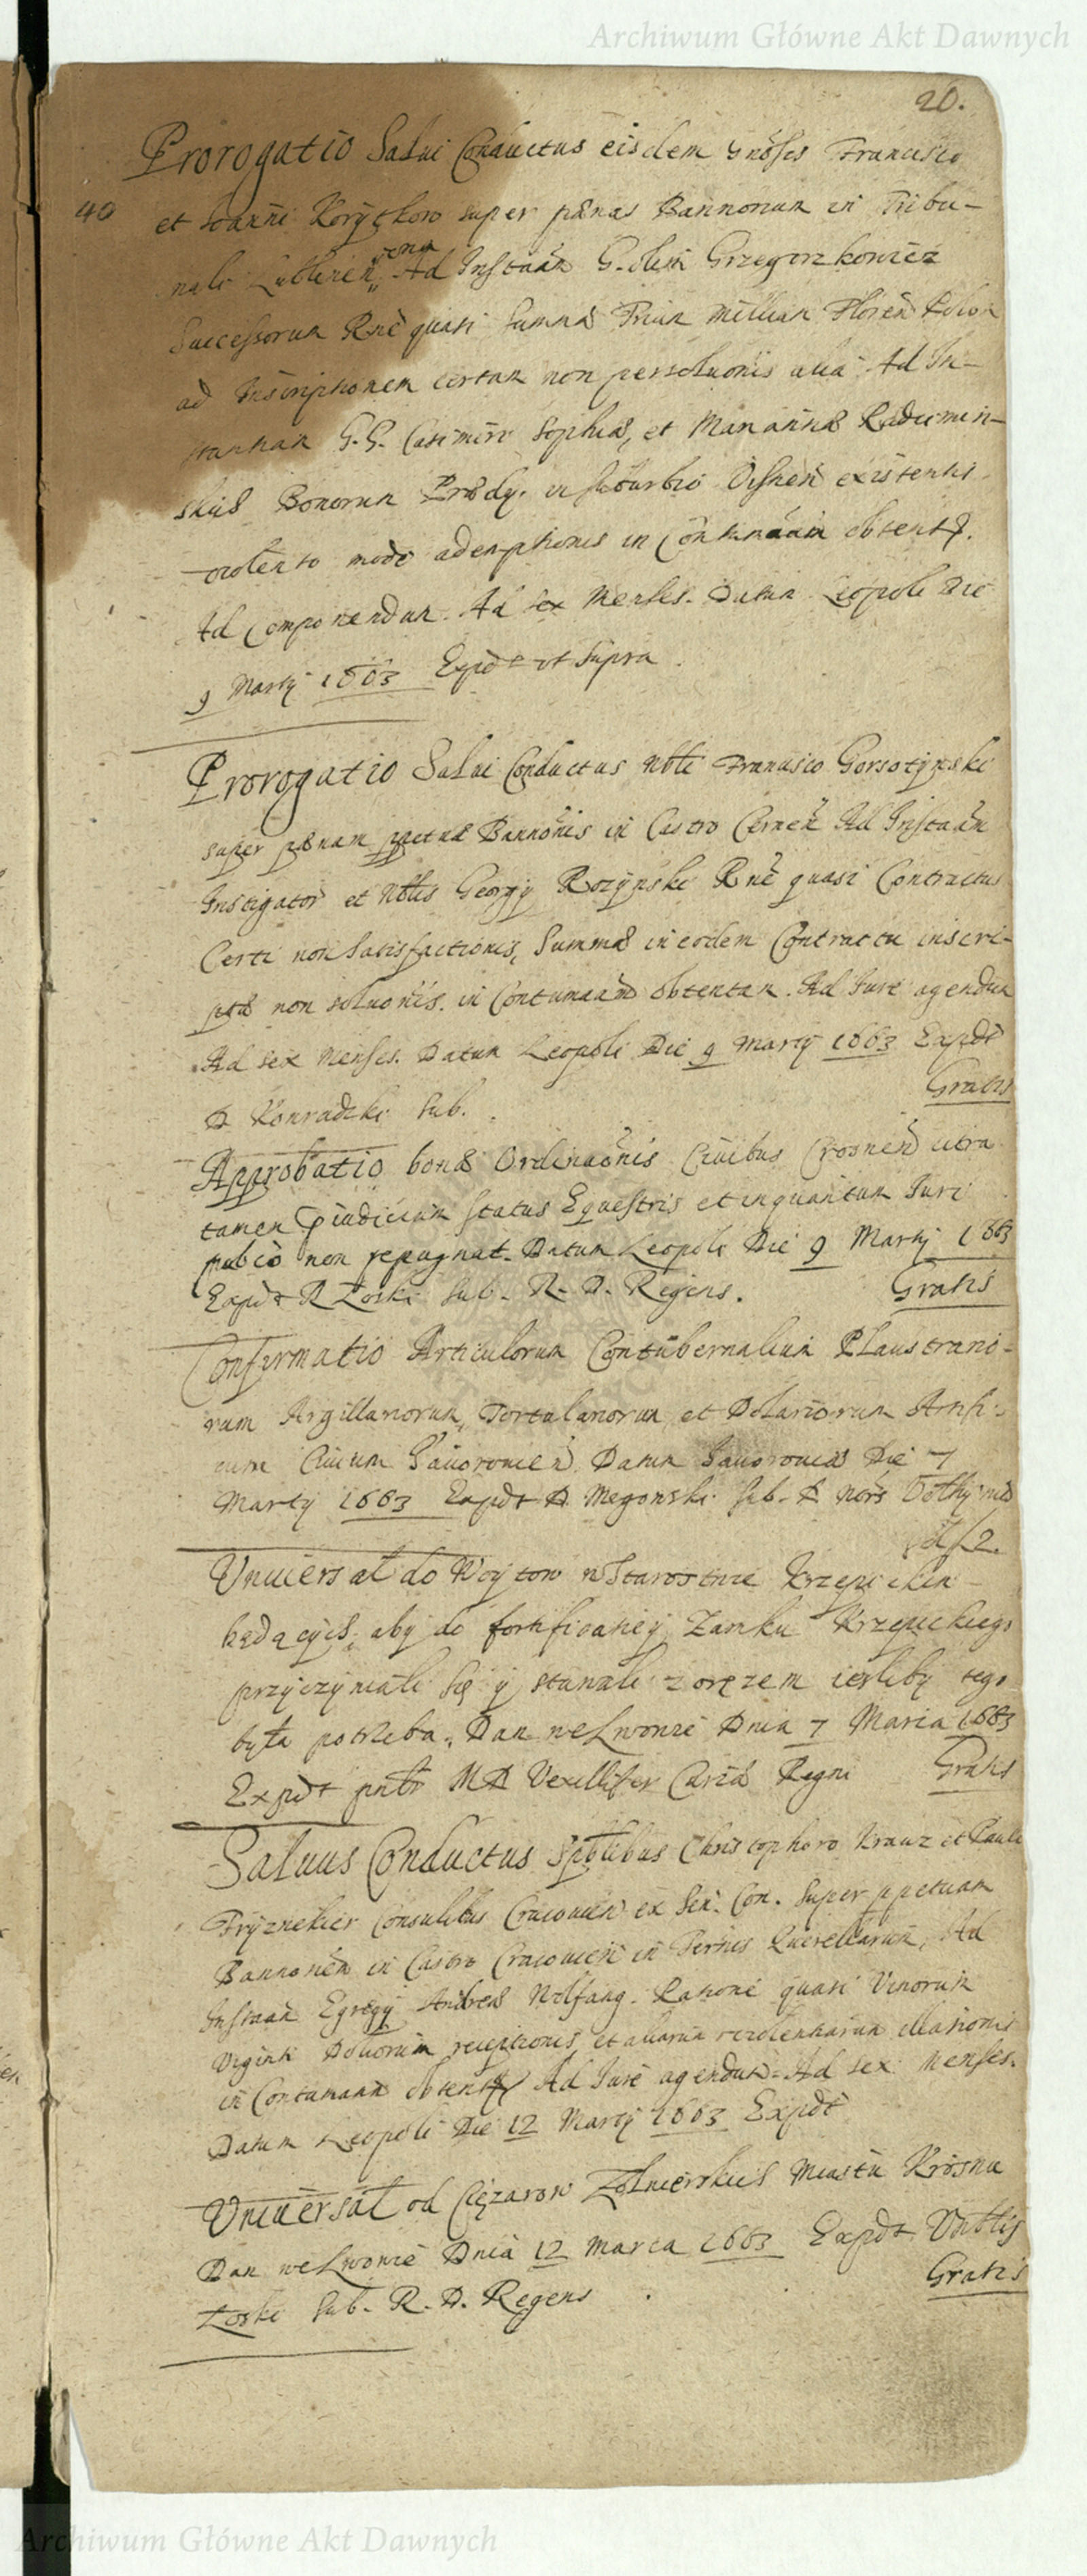 Archiwum Główne Akt Dawnych
20.
Prorogatio Salui Conductus eisdem Gnosis Francisco
40
et Joanni Koryckow super pænas Bannorum in Tribu-
nali Lublinen Ad Instaan G. olim Grzegorz
Successorum Rne quasi Summæ Trium Millium Floren Polon
ad Inscriptionem certam non persoluonis alia Ad In-
stantiam G. G. Casimiri Sophiæ, et Mariannæ Radzimin-
skiis Bonorum in suburbio existentis
violento modo ademptionis in Contumaam obtent.
Ad Componendum. Ad sex Menses. Datum Leopoli Die
9 Martij 1663 Expdt ut Supra.
Prorogatio Salui Conductus Nobli Francisco
super pænam ppetuæ Bannonis in Castro Ad Instaan
Instigator et Nblis Georgij Rozynski Rne quasi Contractus
Certi non Satisfactionis, Summæ in eodem Contractu inscri-
ptæ non soluonis. in Contumaam obtentam. Ad Jure agendum
Ad sex Menses. Datum Leopoli Die 9 Martij 1663 Expdt
Gratis
D Konradzki Sub.
Approbatio bonæ Ordinaonis Ciuibus Crosnen citra
tamen piudicium Status Equestris et inquantum Juri
publco non repugnat. Datum Leopoli Die 9 Martij 1663
Expdt R Zoski Sub. R. D. Regens. Gratis
Confirmatio Articulorum Contubernalium Plaustrario-
rum Argillanorum, et Doliariorum Artifi-
cum Ciuium Jauorouien. Datum Jauorouiæ Die 7
Martij 1663 Expdt D. Megonski Sub. D
Vniuersał do Woytow w Starostwie Krzepickim
będących, aby do fortificatiey Zamku Krzepickiego
przyczyniali się y stanęli z orężem iesliby tego
była potrzeba. Dan we Lwowie Dnia 7 Marca 1663
Expdt pntr MD Vexillifer Curiæ Regni Gratis
Saluus Conductus Sptblibus Christophoro Krauz et Paulo
Fryznekier Consulibus Cracouien ex Sen. Con. Super ppetuam
Bannonem in Castro Cracouien in Termis Querellarum, Ad
Instaan Egregij Andreæ Wolfang. Ratione quasi Vinorum
Viginti Doliorum receptionis, et aliarum violentiarum illationis
in Contumaam obtent Ad Jure agendum. Ad sex Menses.
Datum Leopoli Die 12 Martij 1663 Expdt
Vniuersał od Ciężarow Zołnierskich Miastu Krosnu
Dan we Lwowie Dnia 12 Marca 1663 Expdt Vnblis
Gratis
Zoski Sub. R. D. Regens
Archiwum Główne Akt Dawnych